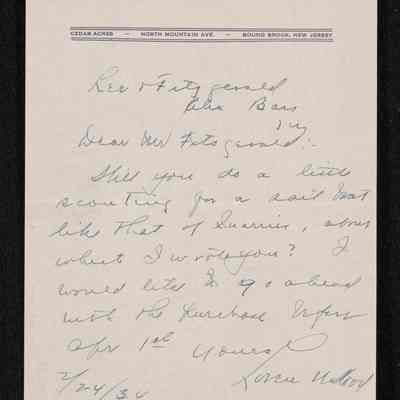 CEDAR ACRES — NORTH MOUNTAIN AVE. — BOUND BROOK, NEW JERSEY
Rev Fitzgerald
Alex Bay
N.Y.
Dear Mr Fitzgerald:-
Will you do a little
scouting for a sail boat
like that of
what I wrote you? I
would like to go ahead
with the purchase before
Apr 1st
Yours
2/24/34
Loren